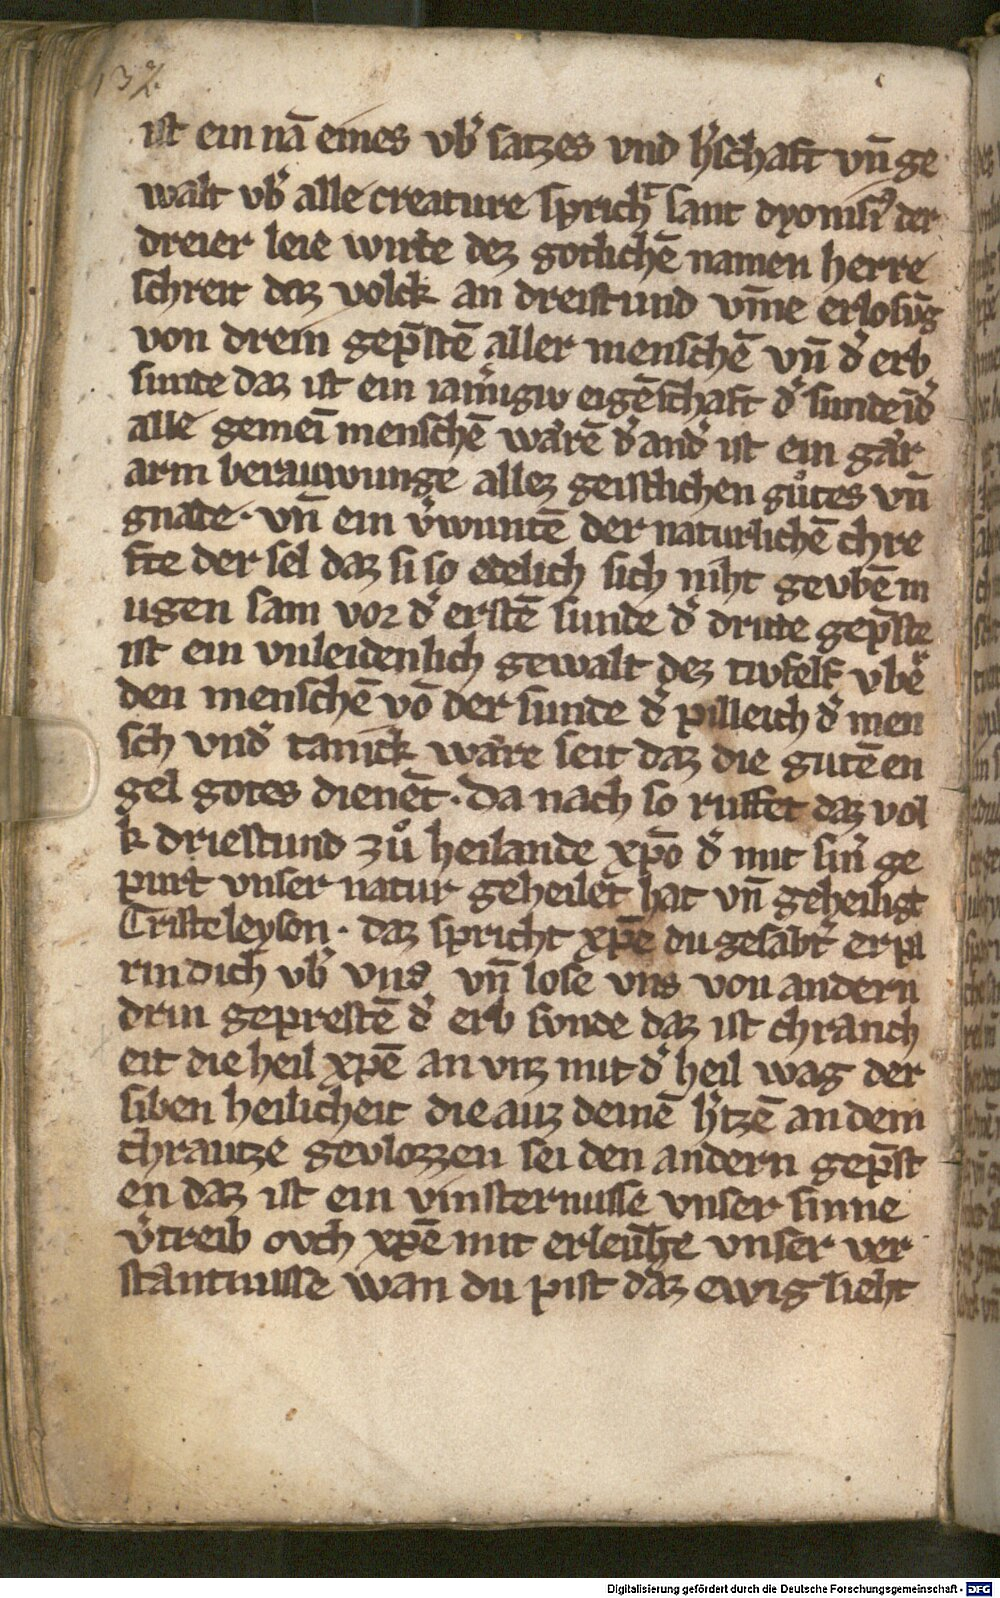 132
ist ein nā eines vb̛ satzes vnd h̛schaft vn̄ ge
walt vb̛ alle creature sprichͭ sant dyonisiꝰ der
dreier leie wirde dez gotlichē namen herre
schreit daz volck an dreistund vm̄e erlosūg
von drein gep̄stē aller menschē vn̄ d̛ erb
sunte daz ist ein iam̛igiv eigēschaft d̛ sunde īd̛
alle gemeī menschē warē d̛ and̛ ist ein gar
arm berauwunge allez geistlichen gůtes vn̄
gnade · vn̄ ein v̛wuntē der naturlichē chre
fte der sel daz si so edelich sich niht gevbē m
ugen sam vor d̛ erstē sunde d̛ dritte gep̄ste
ist ein vnleidenlich gewalt dez tivfels vbē̛
den menschē vō der sunde d̛ pilleich d̛ men
sch vnd̛ tanick wäre seit daz die gutē en
gel gotes dienēt · Da nach so ruffet daz vol
k driestund zů heilande xp̄o d̛ mit sin̛ ge
purt vnser natur geheilet hat vn̄ geheiligt
Cristeleyson · daz spricht xp̄e du gesabt̛ erpa
rm dich vb̛ vns vn̄ lose vns von andern
drin geprestē d̛ erb svnde daz ist chranch
eit die heil xp̄e an vnz mit d̛ heil wag der
siben heilicheit die auz deinē h̛tzē an dem
chrautze gevlozzen sei den andern gep̄st
en daz ist ein vinsternusse vnser sinne
v̛treib ovch xp̄e mit erleuhte vnser ver
stantnusse wan du pist daz ewig lieht
Digitalisierung gefördert durch die Deutsche Forschungsgemeinschaft - DFG